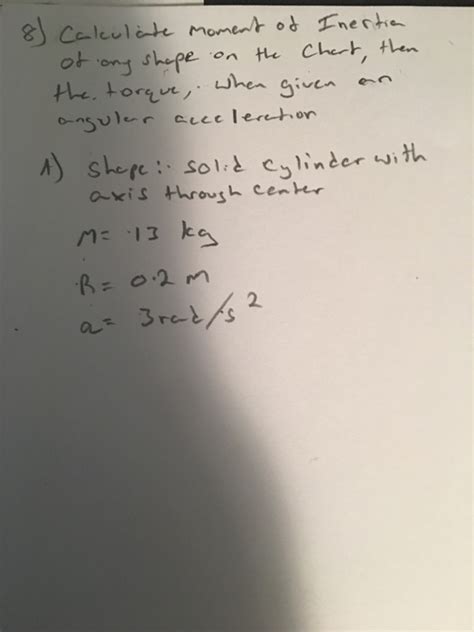 8) Calculate moment of Inertia
of any shape on the Chart, then
the torque, when given an
angular acceleration
A) Shape: solid cylinder with
axis through center
M= .13 kg
R= 0.2 M
a= 3rad/s²